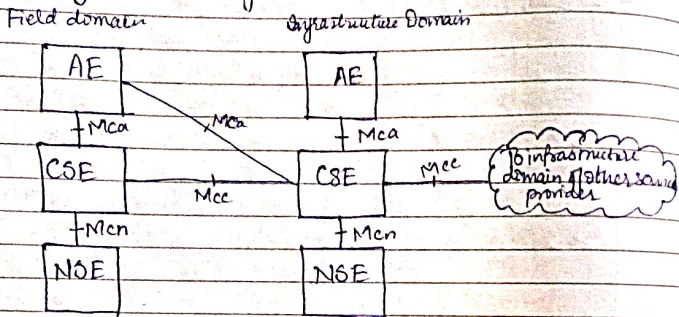 Field domain
Infrastructure Domain
AE
AE
Mca
Mca
Mca
CSE
CSE
Mcc
Mcc
To infrastructure
domain of other service
provider
Mcn
Mcn
NSE
NSE